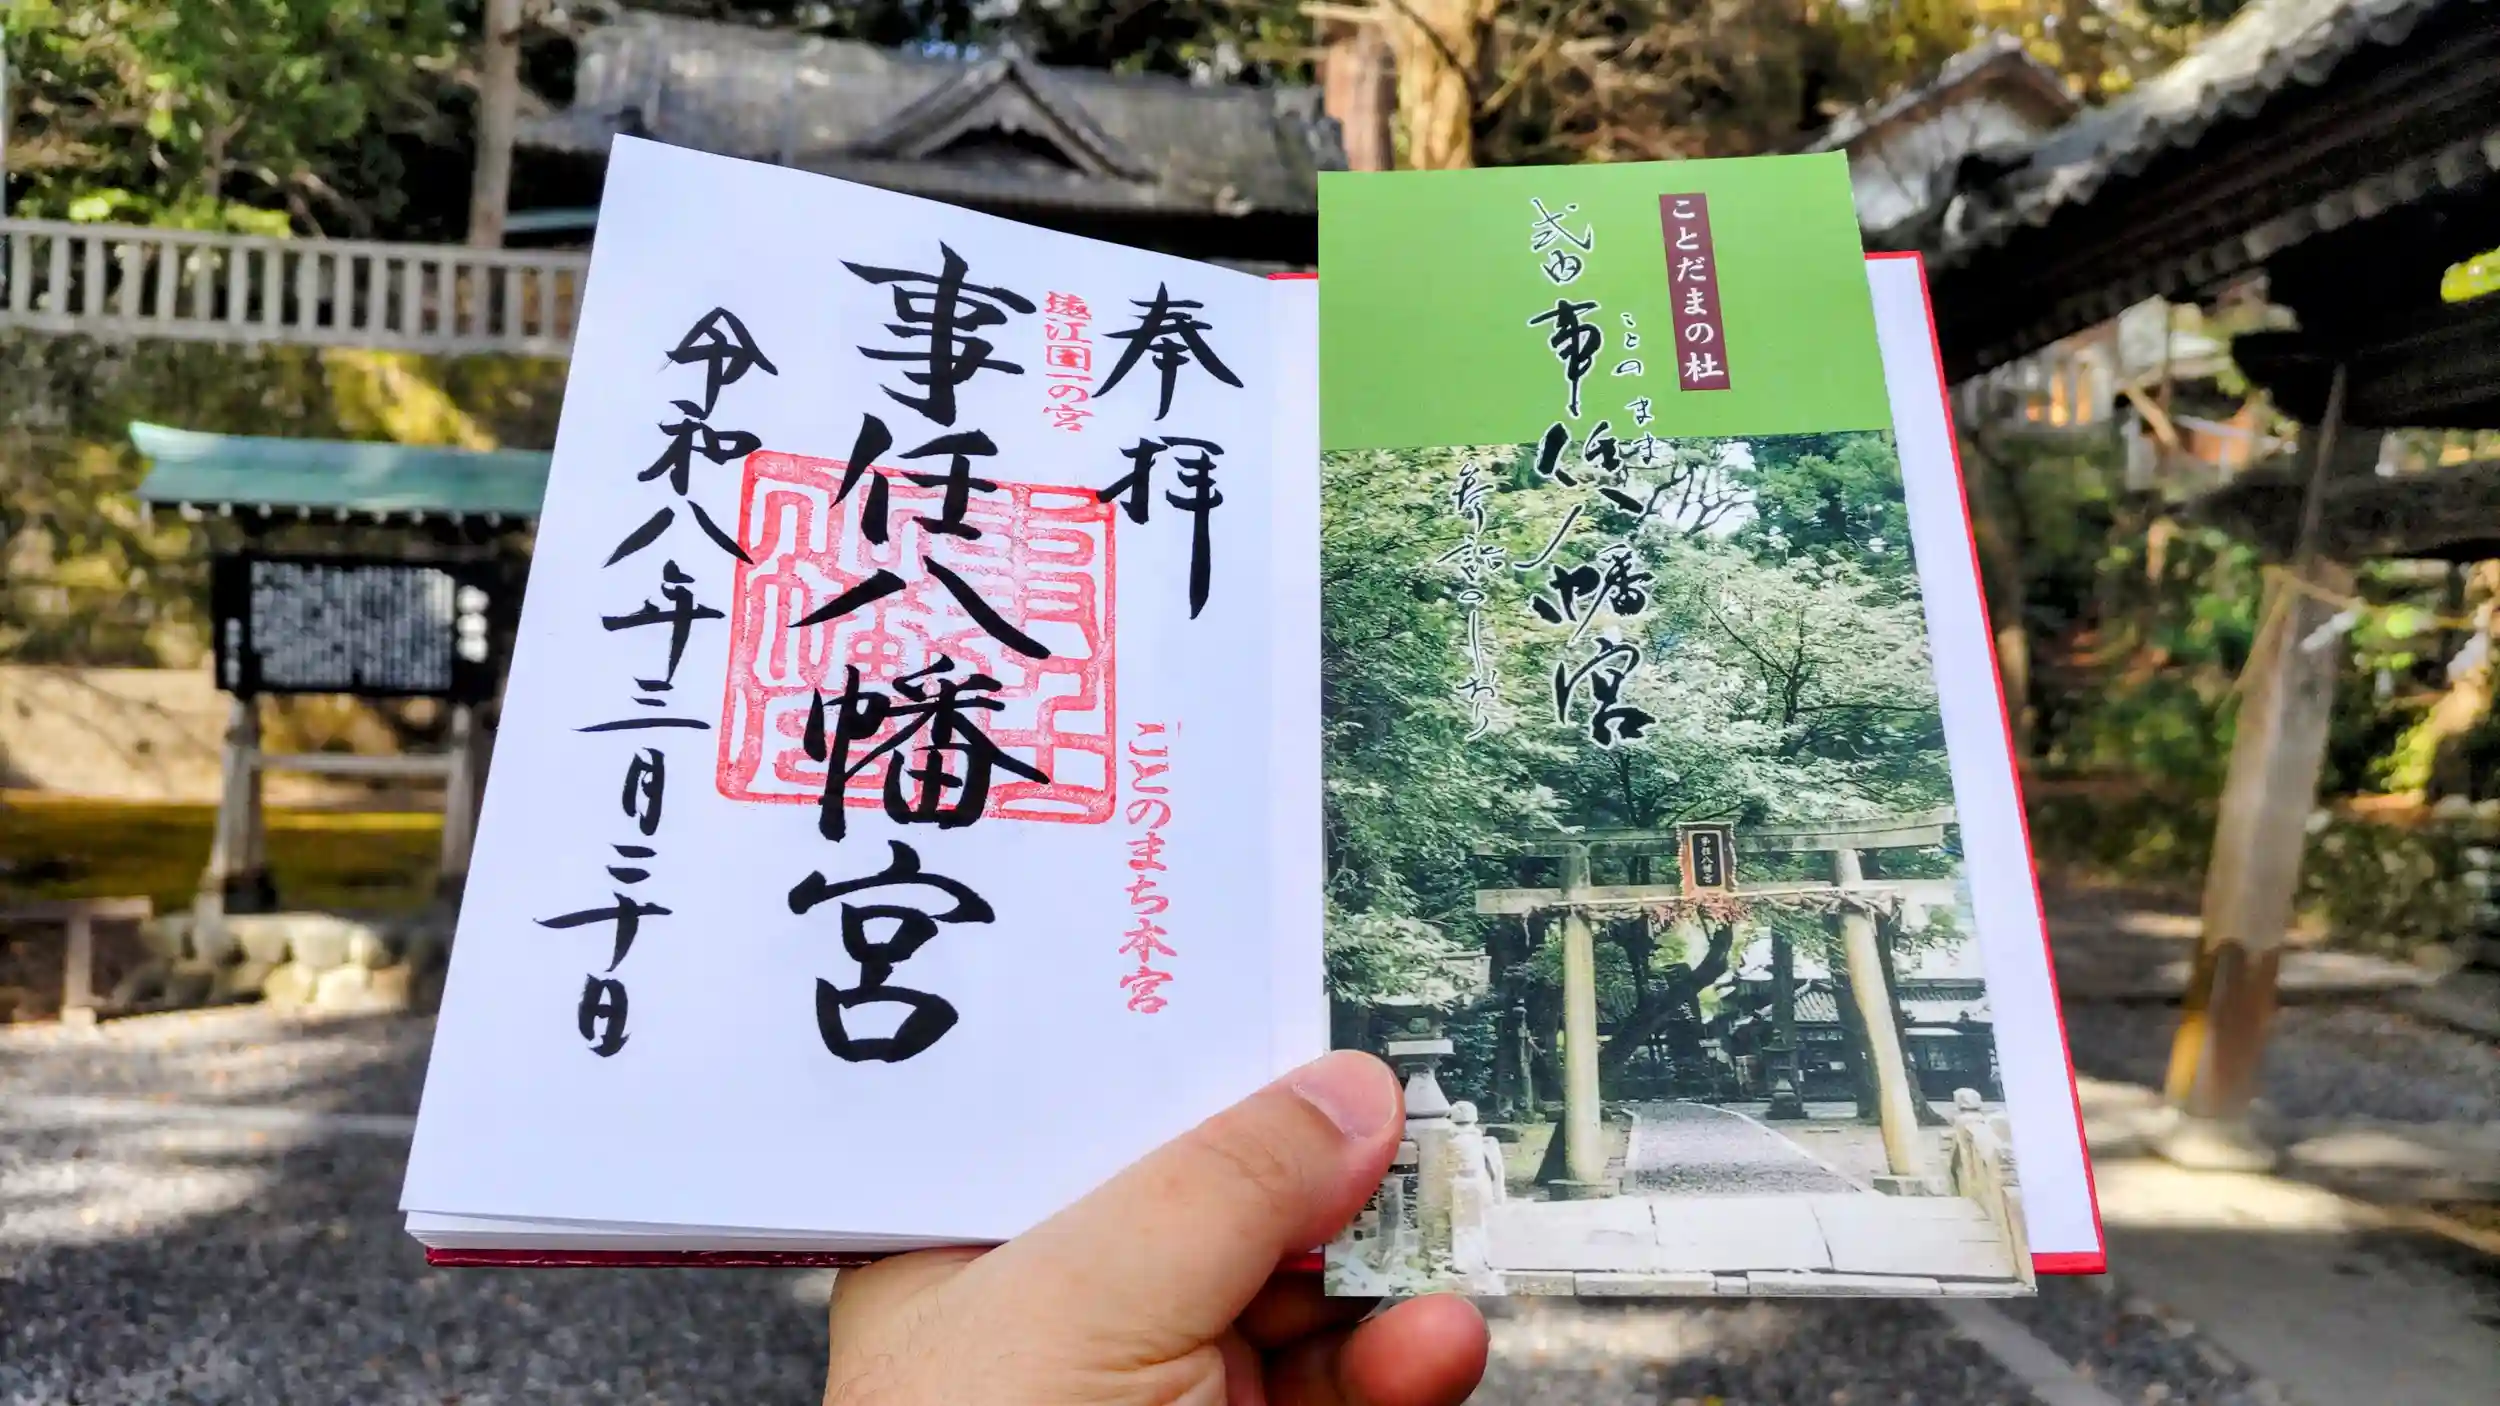 奉拝
遠江国一の宮
ことのまち本宮
事任八幡宮
令和八年三月二十日
ことだまの杜
式内
ことのまま
事任八幡宮
参詣のしおり
事任八幡宮